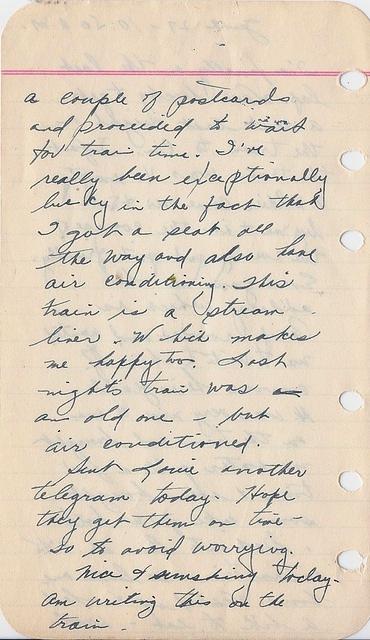 a couple of postcards
and proceeded to wait
for train time. I've
really been exceptionally
lucky in the fact that
I got a seat all
the way and also have
air conditioning. This
train is a stream
liner. Which makes
me happy too. Last
nights train was a
an old one - but
air conditioned.
Sent Louie another
telegram today. Hope
they get them on time -
so to avoid worrying.
Nice & sunshiny today.
Am writing this on the
train.